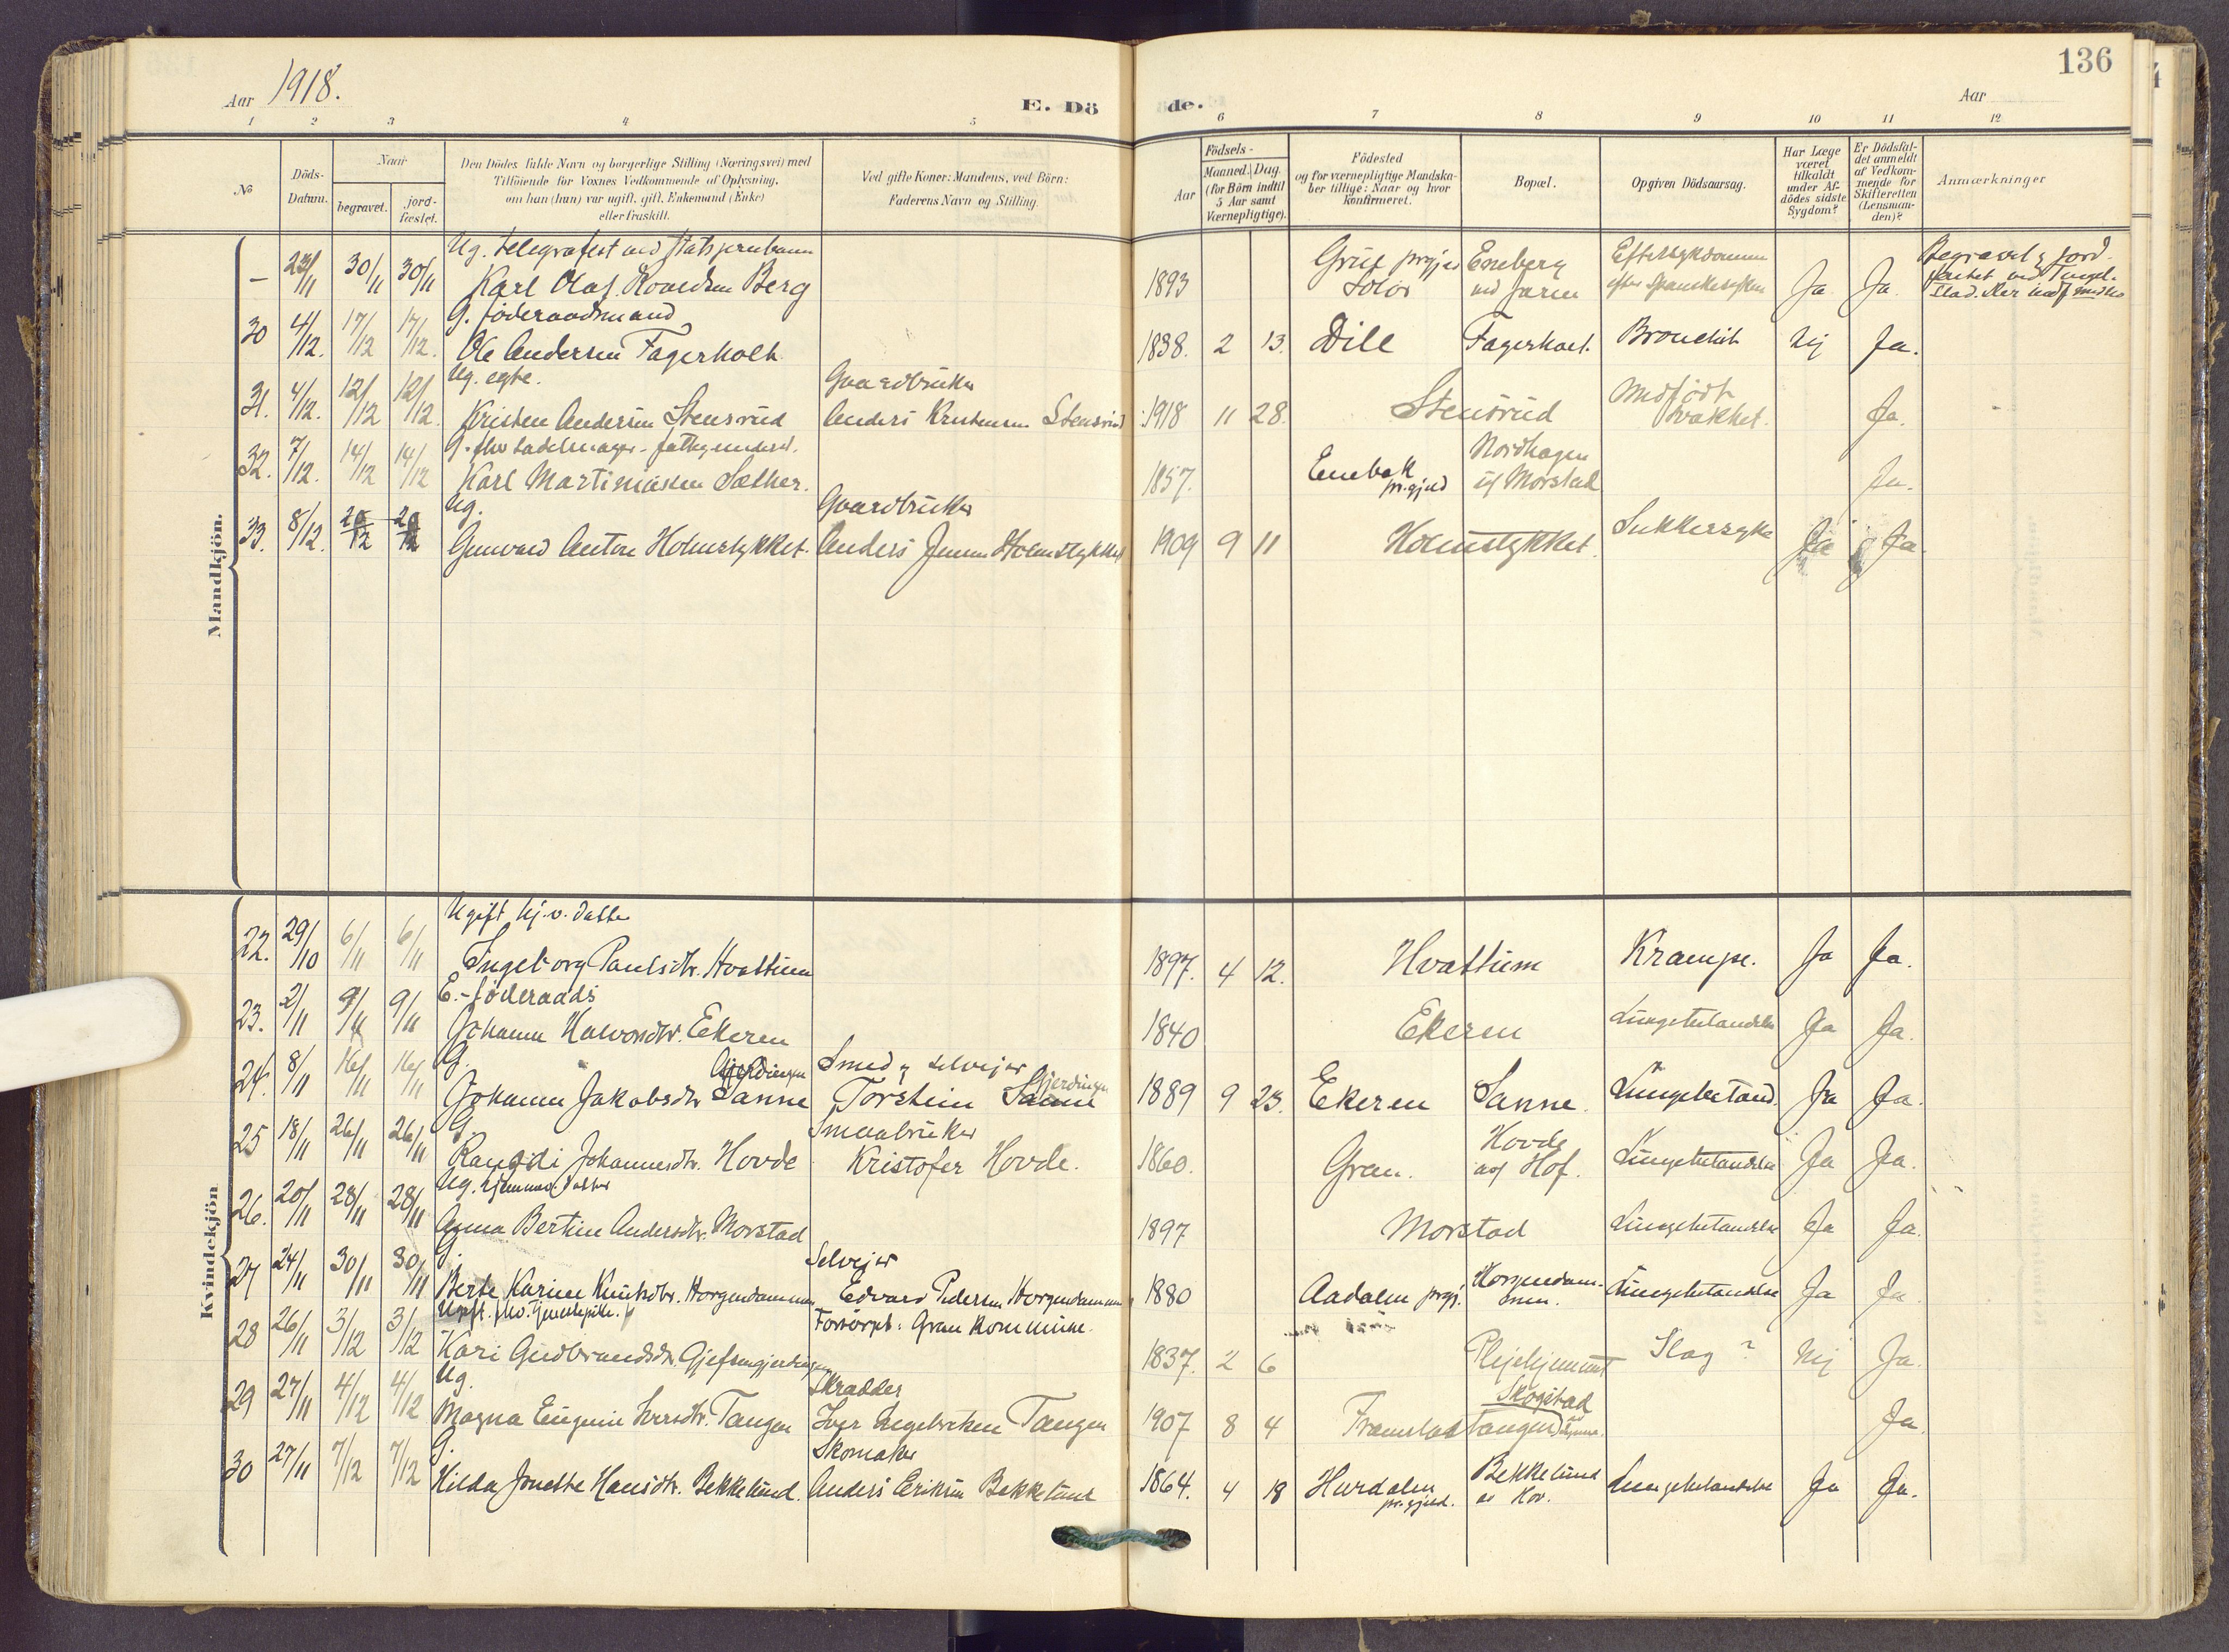 136
Aar 1918.
E. Döde.
Aar
1 2 3 4 5 6 7 8 9 10 11 12
No
Döds-Datum.
Naar
begravet.
jord-fæstet.
Den Dödes fulde Navn og borgerlige Stilling (Næringsvei) med
Tilföiende for Voxnes Vedkommende af Oplysning,
om han (hun) var ugift, gift, Enkemand (Enke)
eller fraskilt.
Ved gifte Koner: Mandens, ved Börn:
Faderens Navn og Stilling.
Födsels-
Aar
Maaned. Dag
(for Börn indtil
5 Aar samt
Værnepligtige).
Födested
og for værnepligtige Mandska-
ber tillige: Naar og hvor
konfirmeret.
Bopæl.
Opgiven Dödsaarsag.
Har Læge
været
tilkaldt
under Af-
dödes sidste
Sygdom?
Er Dödsfal-
det anmeldt
af Vedkom-
mende for
Skifteretten
(Lensman-
den)?
Anmærkninger
Mandkjön.
Ug. telegrafist ved statsjernbanen
– 23/11 30/11 30/11 Karl Olaf Berg 1893 Grue prgjed Solør Eneberg ved Jaren Ja Ja
G. föderaadsmand
30 4/12. 17/12 17/12. Ole Andersen Fagerholt 1838. 2 13. Dill Fagerholt. Bronchit Nej Ja.
Ug. egte. Gaardbruker
31. 4/12. 12/12 12/12. Kristen Andersen Stensrud Anders Kristensen Stensrud 1918 11 28. Stensrud Medfödt svakhet. Ja.
32. 7/12. 14/12 14/12 Karl Martiniussen Sæther. 1857. Enebak pr.gjeld Nordhagen u/ Morstad Ja.
Ug. Gaardbruker
33. 8/12. 20/12 20/12 Gunvald Anton Holmstykket. Anders Jensen Holmstykket 1909 9 11 Holmstykket. Sukkersyke Ja Ja
Kvindekjön
Ugift hj.v. datter
22. 29/10 6/11 6/11 Ingeborg Paulsdtr. Hvattum 1897. 4 12. Hvattum Krampe. Ja Ja.
E.-föderaads
23. 2/11 9/11 9/11 Johanne Halvorsdtr. Ekeren 1840 Ekeren Lungebetændelse Ja Ja.
G. Gjerdingen Smed og selvejer Gjerdingen
24. 8/11 16/11 16/11 Johanne Jakobsdtr Sanne Torstein Sanne 1889 9 23. Ekeren Sanne. Lungebetænd. Ja Ja.
G. Smaabruker
25 18/11 26/11 26/11 Rangdi Johannesdtr. Hovde Kristofer Hovde. 1860. Gran. Hovde af Hof. Lungebetændelse Ja Ja.
Ug. hjemmev. datter
26. 20/11 28/11 28/11 Anna Bertine Andersdtr. Morstad 1897 Morstad Lungebetændelse Ja Ja.
G. Selvejer
27 24/11 30/11 30/11 Berte Karine Knutsdtr. Horgendammen Edvard Pedersen Horgendammen 1880 Aadalen prgj. Horgendammen. Lungebetændelse Ja Ja
Ugift. Forsörget: Gran kommune.
28 26/11 3/12 3/12 Kari Gudbrandsdtr. Gjefsengjerdingen 1837. 2 6 Plejehjemmet Slag? Nej Ja.
Ug. Skrædder
29 27/11 4/12 4/12 Magna Eugenie Iversdtr. Tangen Iver Engebretsen Tangen 1907 8 4 Framstad Tangen Skogstad Ja
G. Skomaker
30 27/11 7/12 7/12 Hilda Jonette Hansdtr. Bekkelund. Anders Eriksen Bekkelund 1864. 4 18 Hurdalen pr.gjeld. Bekkelund av Hov. Lungebetændelse Ja Ja.